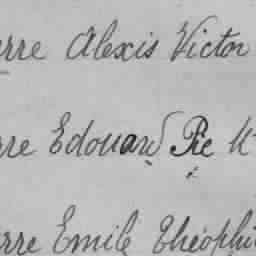 erre Alexis Victor
rre Edouard Pie
erre Emile Théophi